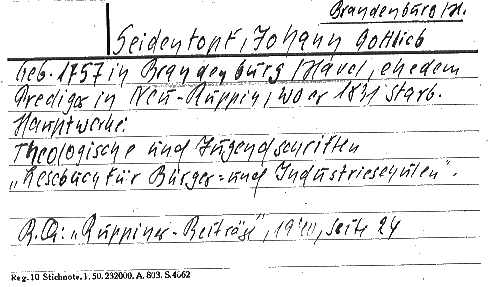 Brandenburg/H.
Seidentopf, Johann Gottlieb
Geb. 1757 in Brandenburg/Havel, ehedem
Prediger in Neu-Ruppin, wo er 1831 starb.
Hauptwerke:
Theologische und Jugendschriften
„Lesebuch für Bürger- und Industrieschulen".
B.Q: „Ruppiner-Beiträge", Seite 24
Reg. 10 Stichnote. 1. 50. 232000. A. 803. S. 4062